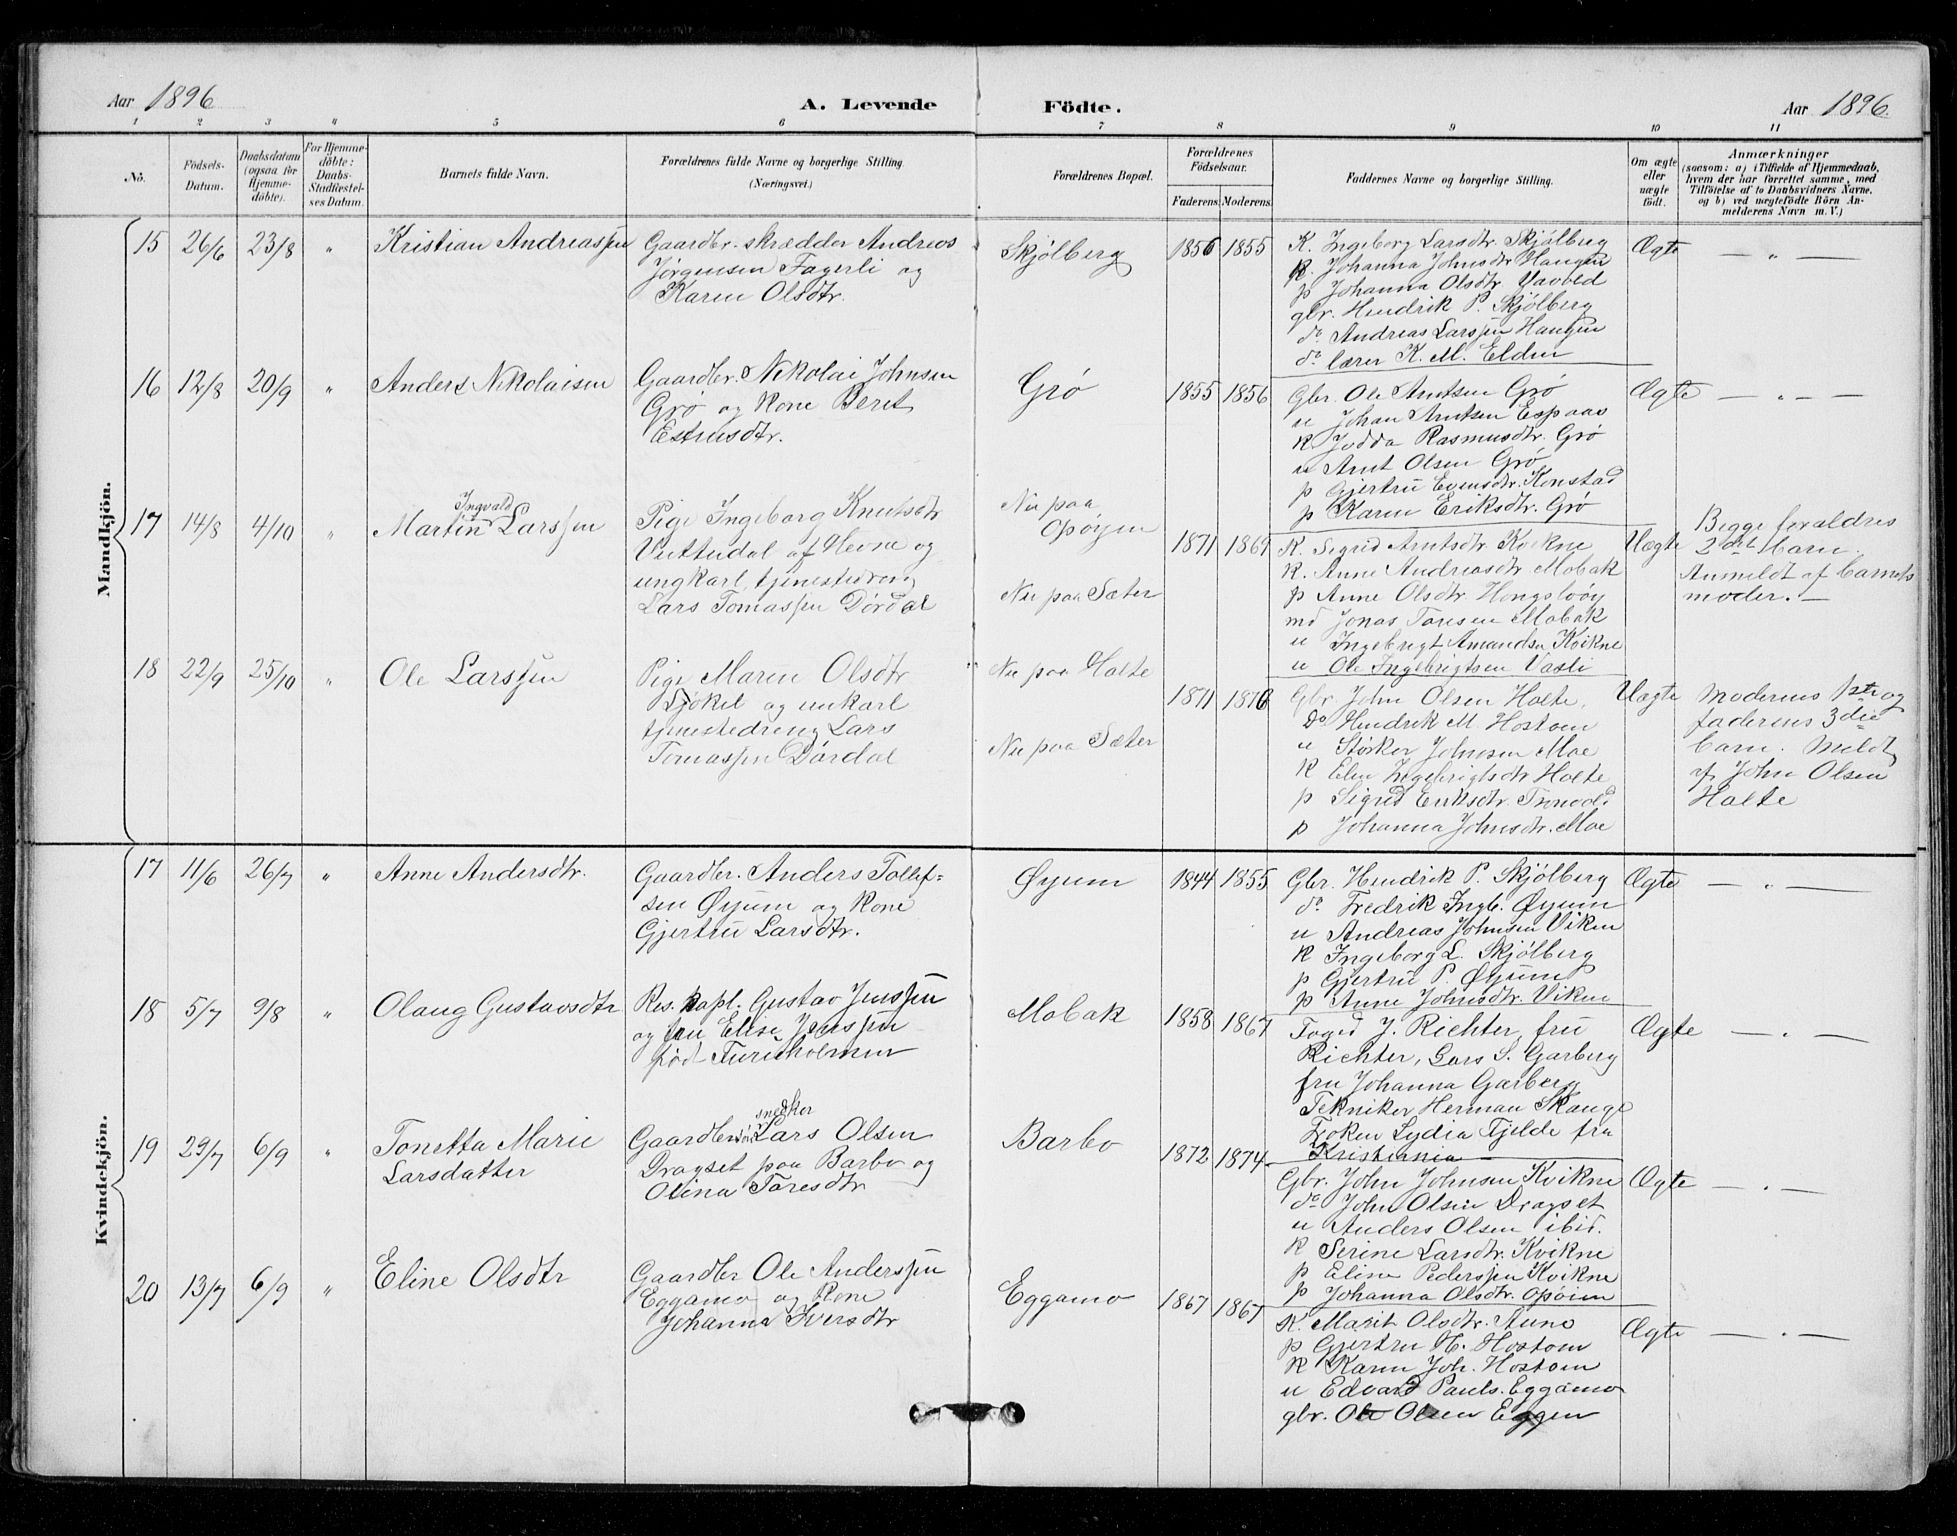 Aar 1896
A. Levende
Födte.
Aar 1896.
1 2 3 4 5 6 7 8 9 10 11
No.
Födsels-Datum.
Daabsdatum (ogsaa for Hjemmedöbte).
For Hjemmedöbte: Daabs-Stadfæstelses Datum.
Barnets fulde Navn.
Forældrenes fulde Navne og borgerlige Stilling.
(Næringsvei.)
Forældrenes Bopæl.
Forældrenes Födselsaar.
Faderens. Moderens.
Faddernes Navne og borgerlige Stilling.
Om ægte eller uægte födt.
Anmærkninger
(saasom: a) i Tilfælde af Hjemmedaab, hvem der har forrettet samme, med Tilföielse af to Daabsvidners Navne, og b) ved uægtefödte Börn Anmelderens Navn m. V.)
Mandkjön.
15 26/6 23/8 " Kristian Andreassen
Gaardbr. skrædder Andreas
Jørgensen Fagerli og
Karen Olsdtr.
Skjølberg
1856 1855
K. Ingeborg Larsdtr. Skjølberg
K. Johanna Johnsdtr Haugen
p Johanna Olsdtr Vavold
gbr. Hendrik P. Skjølberg
do Andreas Larssen Haugen
do lærer K. M. Elden
Ægte
— " —
16 12/8 20/9 " Anders Nikolaisen
Gaardbr. Nikolai Johnsen
Grø og kone Beret
Estensdtr.
Grø
1855 1856
Gbr. Ole Arntsen Grø
u Johan Arntsen Espaas
K Jodda Rasmusdtr. Grø
u Arnt Olsen Grø
p Gjertru Evensdtr. Konstad
p Karen Eriksdtr. Grø
Ægte
— " — —
17 14/8 4/10 " Ingvald
Martin Larssen
Pige Ingeborg Knutsdtr
Vuttudal af Hevne og
ungkarl, tjenestedreng
Lars Tomassen Dørdal
Nu paa
Opøyen
Nu paa Sæter
1871 1869
K. Sigrid Arntsdtr. Kvikne
K. Anne Andreasdtr Mobak
p Anne Olsdtr Hongsløøy
md Jonas Toresen Mobak
u Ingebrigt Amundsn Kvikne
u Ole Ingebrigtsen Vasli
Uægte
Begge foraldres
2det barn.
Anmeldt af barnets
moder. —
18 22/9 25/10 " Ole Larssen
Pige Maren Olsdtr
Ljøkel og unkarl
tjenestedreng Lars
Tomassen Dørdal
Nu paa Holte
Nu paa Sæter
1871 1876
Gbr. John Olsen Holte,
Do Hendrik M Hostom
u Størker Johnsen Moe
K Elen Ingebrigtsdtr Holte
p Sigrid Eriksdtr. Tronvold
p Johanna Johnsdtr. Moe
Uægte
Moderens 1ste og
faderens 3die
barn. Meldt
af John Olsen
Holte
Kvindekjön.
17 11/6 26/7 " Anne Andersdtr.
Gaardbr. Anders Tollef=
sen Øyum og kone
Gjertru Larsdtr.
Øyum
1844 1855
Gbr. Hendrik P. Skjølberg
do Fredrik Ingb. Øyum
u Andreas Johnsen Viken
K Ingeborg L. Skjølberg
p Gjertru P. Øyum
p Anne Johnsdtr. Viken
Ægte
— " —
18 5/7 9/8 " Olaug Gustavsdtr
Res. kapl. Gustav Jenssen
og fru Elise Jenssen
født Furuholmen
Mobak
1858 1867
Foged J. Richter, fru
Richter, Lars S. Garberg
fru Johanna Garberg
Tekniker Herman Skauge
Frøken Lydia Fjelde fra
Kristiania —
Ægte
— . —
19 29/7 6/9 " Tonetta Marie
Larsdatter
snedker
Gaardbr Lars Olsen
Dragset paa Barbo og
Olina Toresdtr
Barbo
1872 1874
Gbr. John Johnsen Kvikne
do John Olsen Dragset
u Anders Olsen ibid.
K Serine Larsdtr. Kvikne
p Eline Pederssen Kvikne
p Johanna Olsdtr. Opøien
Ægte
— . —
20 13/7 6/9 " Eline Olsdtr
Gaardbr Ole Anderssen
Eggamo og kone
Johanna Iversdtr
Eggamo
1867 1867
K. Marit Olsdtr. Aune
p Gjertru H. Hostom
K Karen Joh. Hostom
u Edvard Pauls. Eggamo
gbr. Ole Olsen Eggen
Ægte
— . —